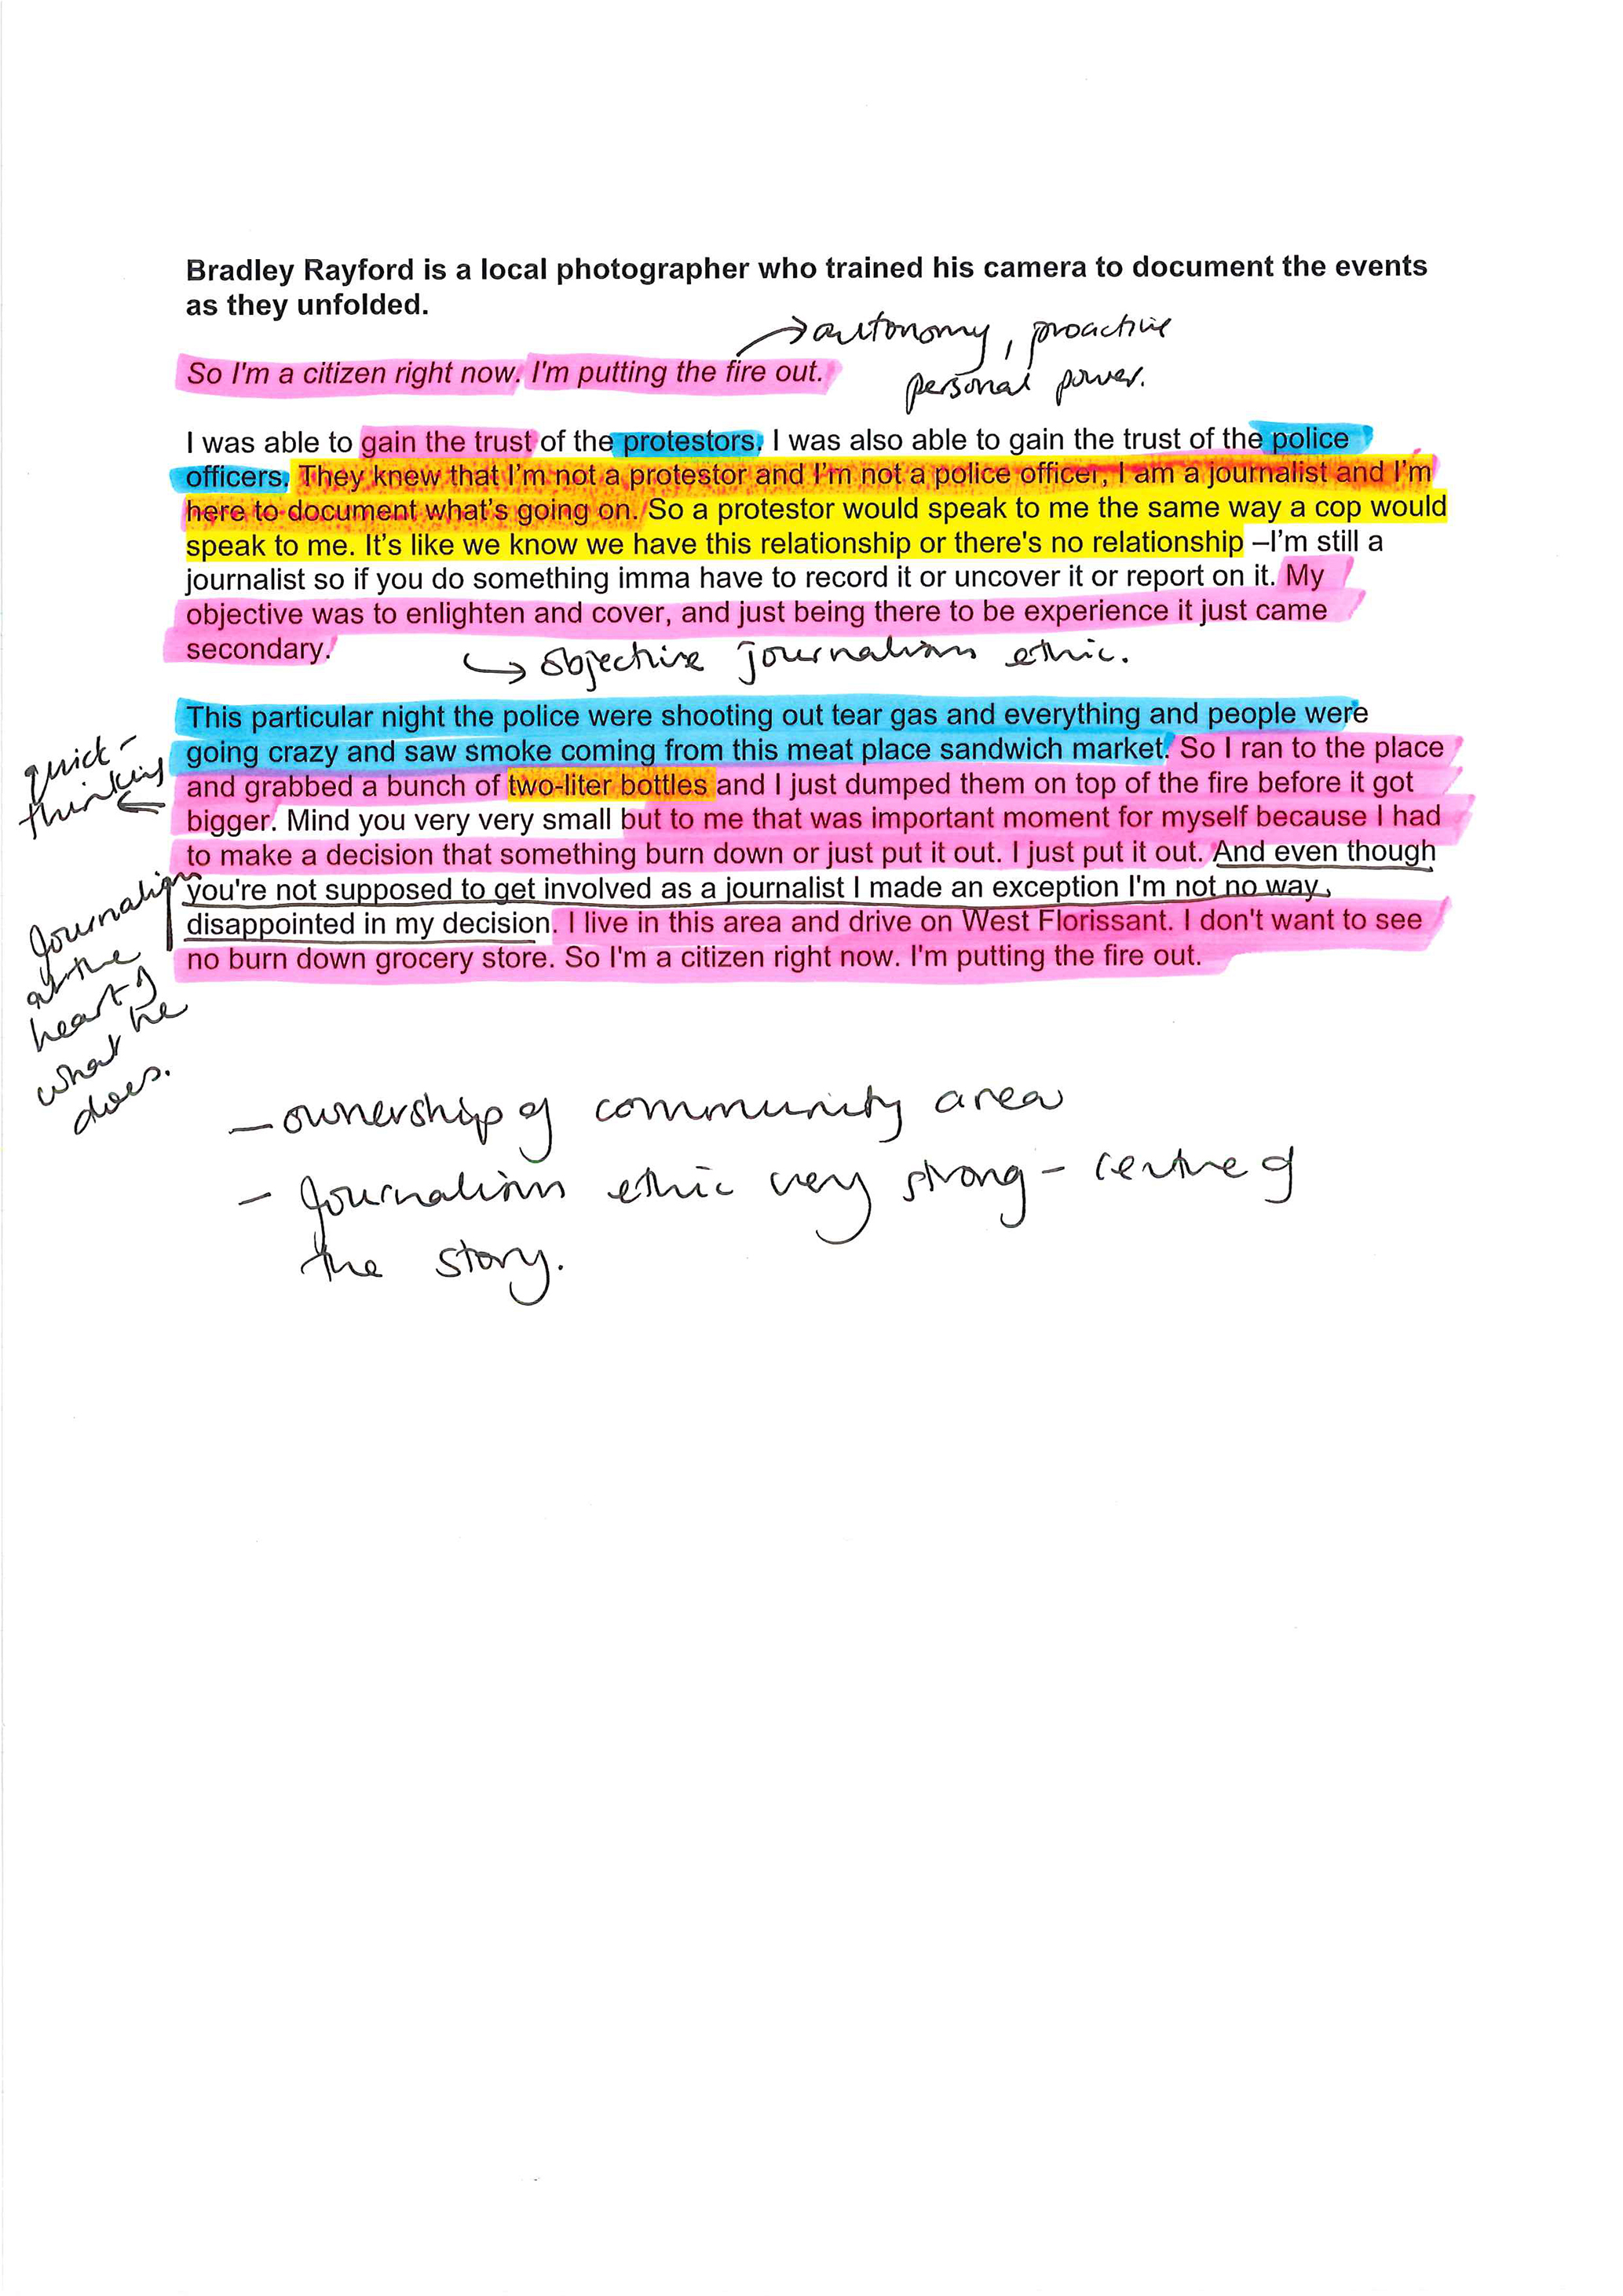 Bradley Rayford is a local photographer who trained his camera to document the events
as they unfolded.
→ autonomy, proactive
So I'm a citizen right now. I'm putting the fire out.
personal power.
I was able to gain the trust of the protestors. I was also able to gain the trust of the police
officers. They knew that I'm not a protestor and I'm not a police officer, I am a journalist and I'm
here to document what's going on. So a protestor would speak to me the same way a cop would
speak to me. It's like we know we have this relationship or there's no relationship –I'm still a
journalist so if you do something imma have to record it or uncover it or report on it. My
objective was to enlighten and cover, and just being there to be experience it just came
secondary.
↪ objective journalism ethic.
This particular night the police were shooting out tear gas and everything and people were
going crazy and saw smoke coming from this meat place sandwich market. So I ran to the place
and grabbed a bunch of two-liter bottles and I just dumped them on top of the fire before it got
bigger. Mind you very very small but to me that was important moment for myself because I had
to make a decision that something burn down or just put it out. I just put it out. And even though
you're not supposed to get involved as a journalist I made an exception I'm not no way
disappointed in my decision. I live in this area and drive on West Florissant. I don't want to see
no burn down grocery store. So I'm a citizen right now. I'm putting the fire out.
quick-
thinking
←
Journalism
at the
heart of
what he
does.
– ownership of community area
– Journalism ethic very strong – centre of
the story.